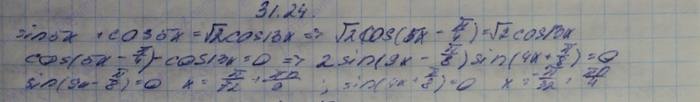 31.24.
sin5x + cos5x = √2cos13x => √2cos(5x - π/4) = √2cos13x
cos(5x - π/4) - cos13x = 0 => 2sin(9x - π/8)sin(4x + π/8) = 0
sin(9x - π/8) = 0 x = π/72 + πn/9 ; sin(4x + π/8) = 0 x = -π/32 + πn/4